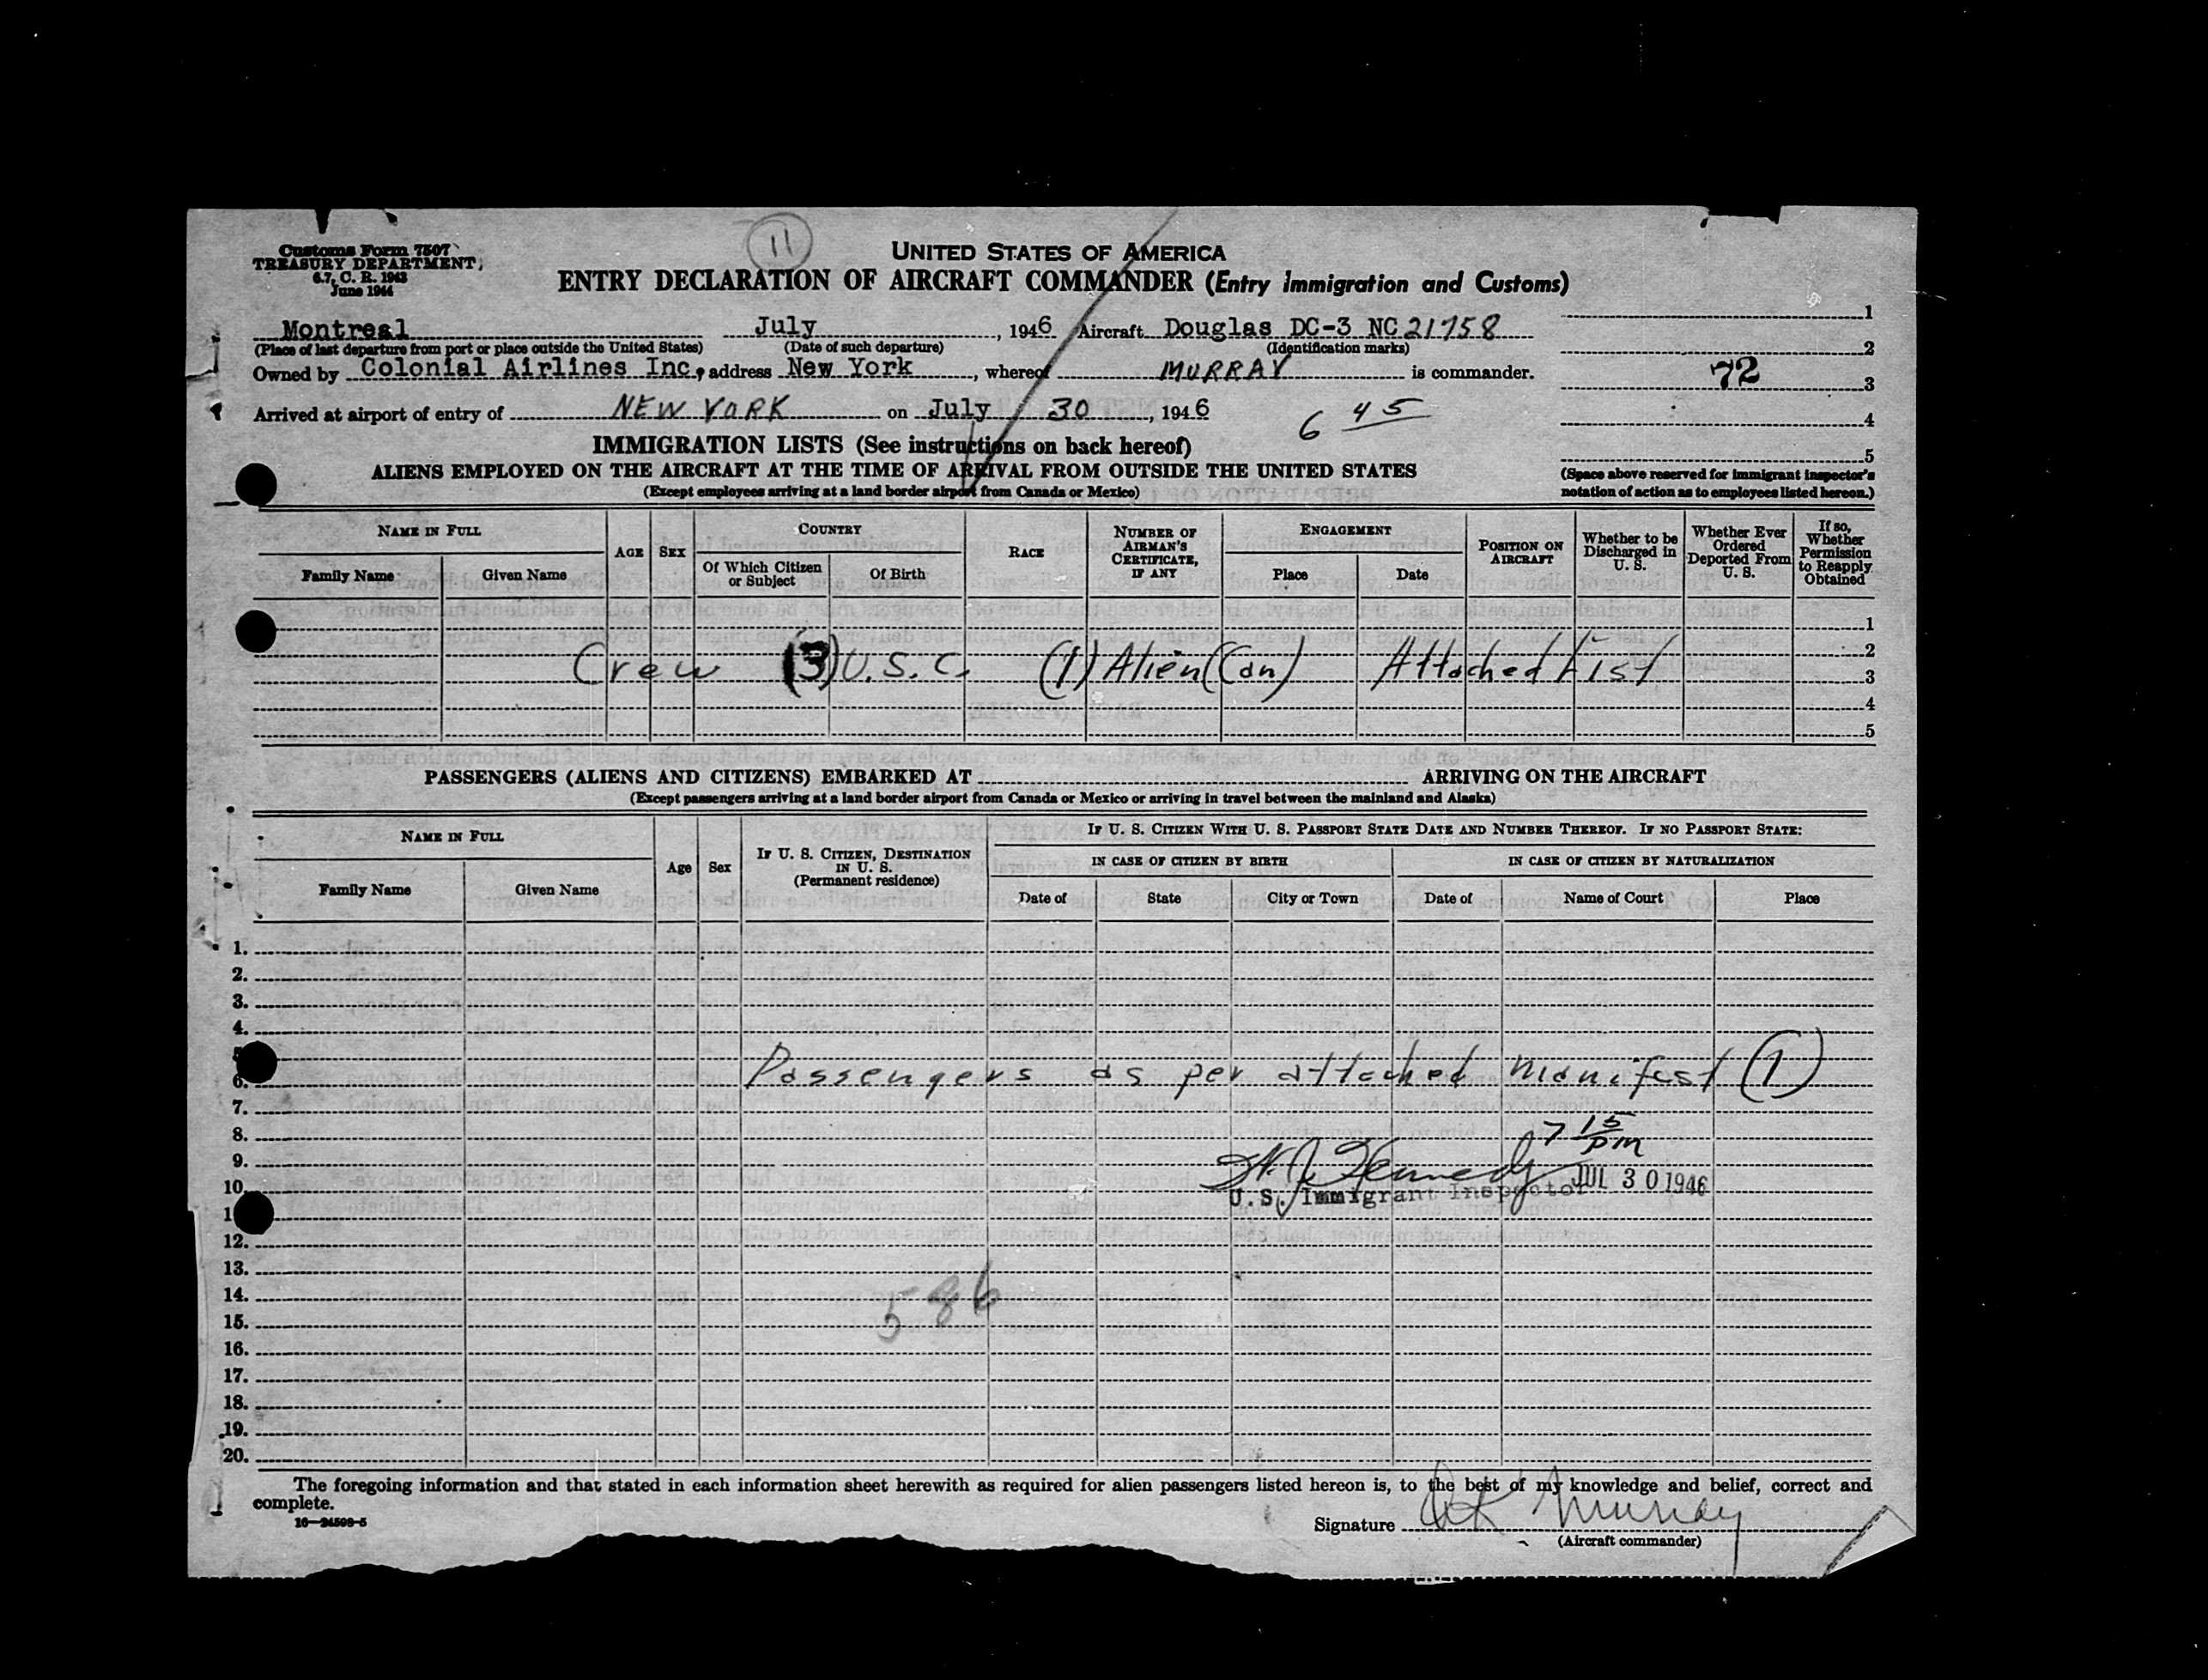 11
Customs Form 7507
TREASURY DEPARTMENT,
6.7, C. R. 1943
June 1944
UNITED STATES OF AMERICA
ENTRY DECLARATION OF AIRCRAFT COMMANDER (Entry Immigration and Customs)
Montreal July , 1946 Aircraft Douglas DC-3 NC 21758
(Place of last departure from port or place outside the United States) (Date of such departure) (Identification marks)
Owned by Colonial Airlines Inc., address New York , whereof MURRAY is commander.
Arrived at airport of entry of NEW YORK on July 30 , 1946
6 45
1
2
72 3
4
5
(Space above reserved for immigrant inspector's
notation of action as to employees listed hereon.)
IMMIGRATION LISTS (See instructions on back hereof)
ALIENS EMPLOYED ON THE AIRCRAFT AT THE TIME OF ARRIVAL FROM OUTSIDE THE UNITED STATES
(Except employees arriving at a land border airport from Canada or Mexico)
NAME IN FULL
Family Name Given Name
AGE
SEX
COUNTRY
Of Which Citizen or Subject
Of Birth
RACE
NUMBER OF AIRMAN'S CERTIFICATE, IF ANY
ENGAGEMENT
Place Date
POSITION ON AIRCRAFT
Whether to be Discharged in U. S.
Whether Ever Ordered Deported From U. S.
If so, Whether Permission to Reapply Obtained
1
2
Crew (3) U.S.C. (1) Alien (Can) Attached List 3
4
5
PASSENGERS (ALIENS AND CITIZENS) EMBARKED AT ARRIVING ON THE AIRCRAFT
(Except passengers arriving at a land border airport from Canada or Mexico or arriving in travel between the mainland and Alaska)
NAME IN FULL
Family Name Given Name
Age
Sex
IF U. S. CITIZEN, DESTINATION IN U. S.
(Permanent residence)
IF U. S. CITIZEN WITH U. S. PASSPORT STATE DATE AND NUMBER THEREOF. IF NO PASSPORT STATE:
IN CASE OF CITIZEN BY BIRTH IN CASE OF CITIZEN BY NATURALIZATION
Date of State City or Town Date of Name of Court Place
1.
2.
3.
4.
5.
6. Passengers as per attached manifest (1)
7.
8. 7 15 pm
9. Kennedy JUL 30 1946
10. U. S. Immigrant Inspector
1
12.
13.
14. 586
15.
16.
17.
18.
19.
20.
The foregoing information and that stated in each information sheet herewith as required for alien passengers listed hereon is, to the best of my knowledge and belief, correct and
complete.
16—24598-5
Signature Murray
(Aircraft commander)